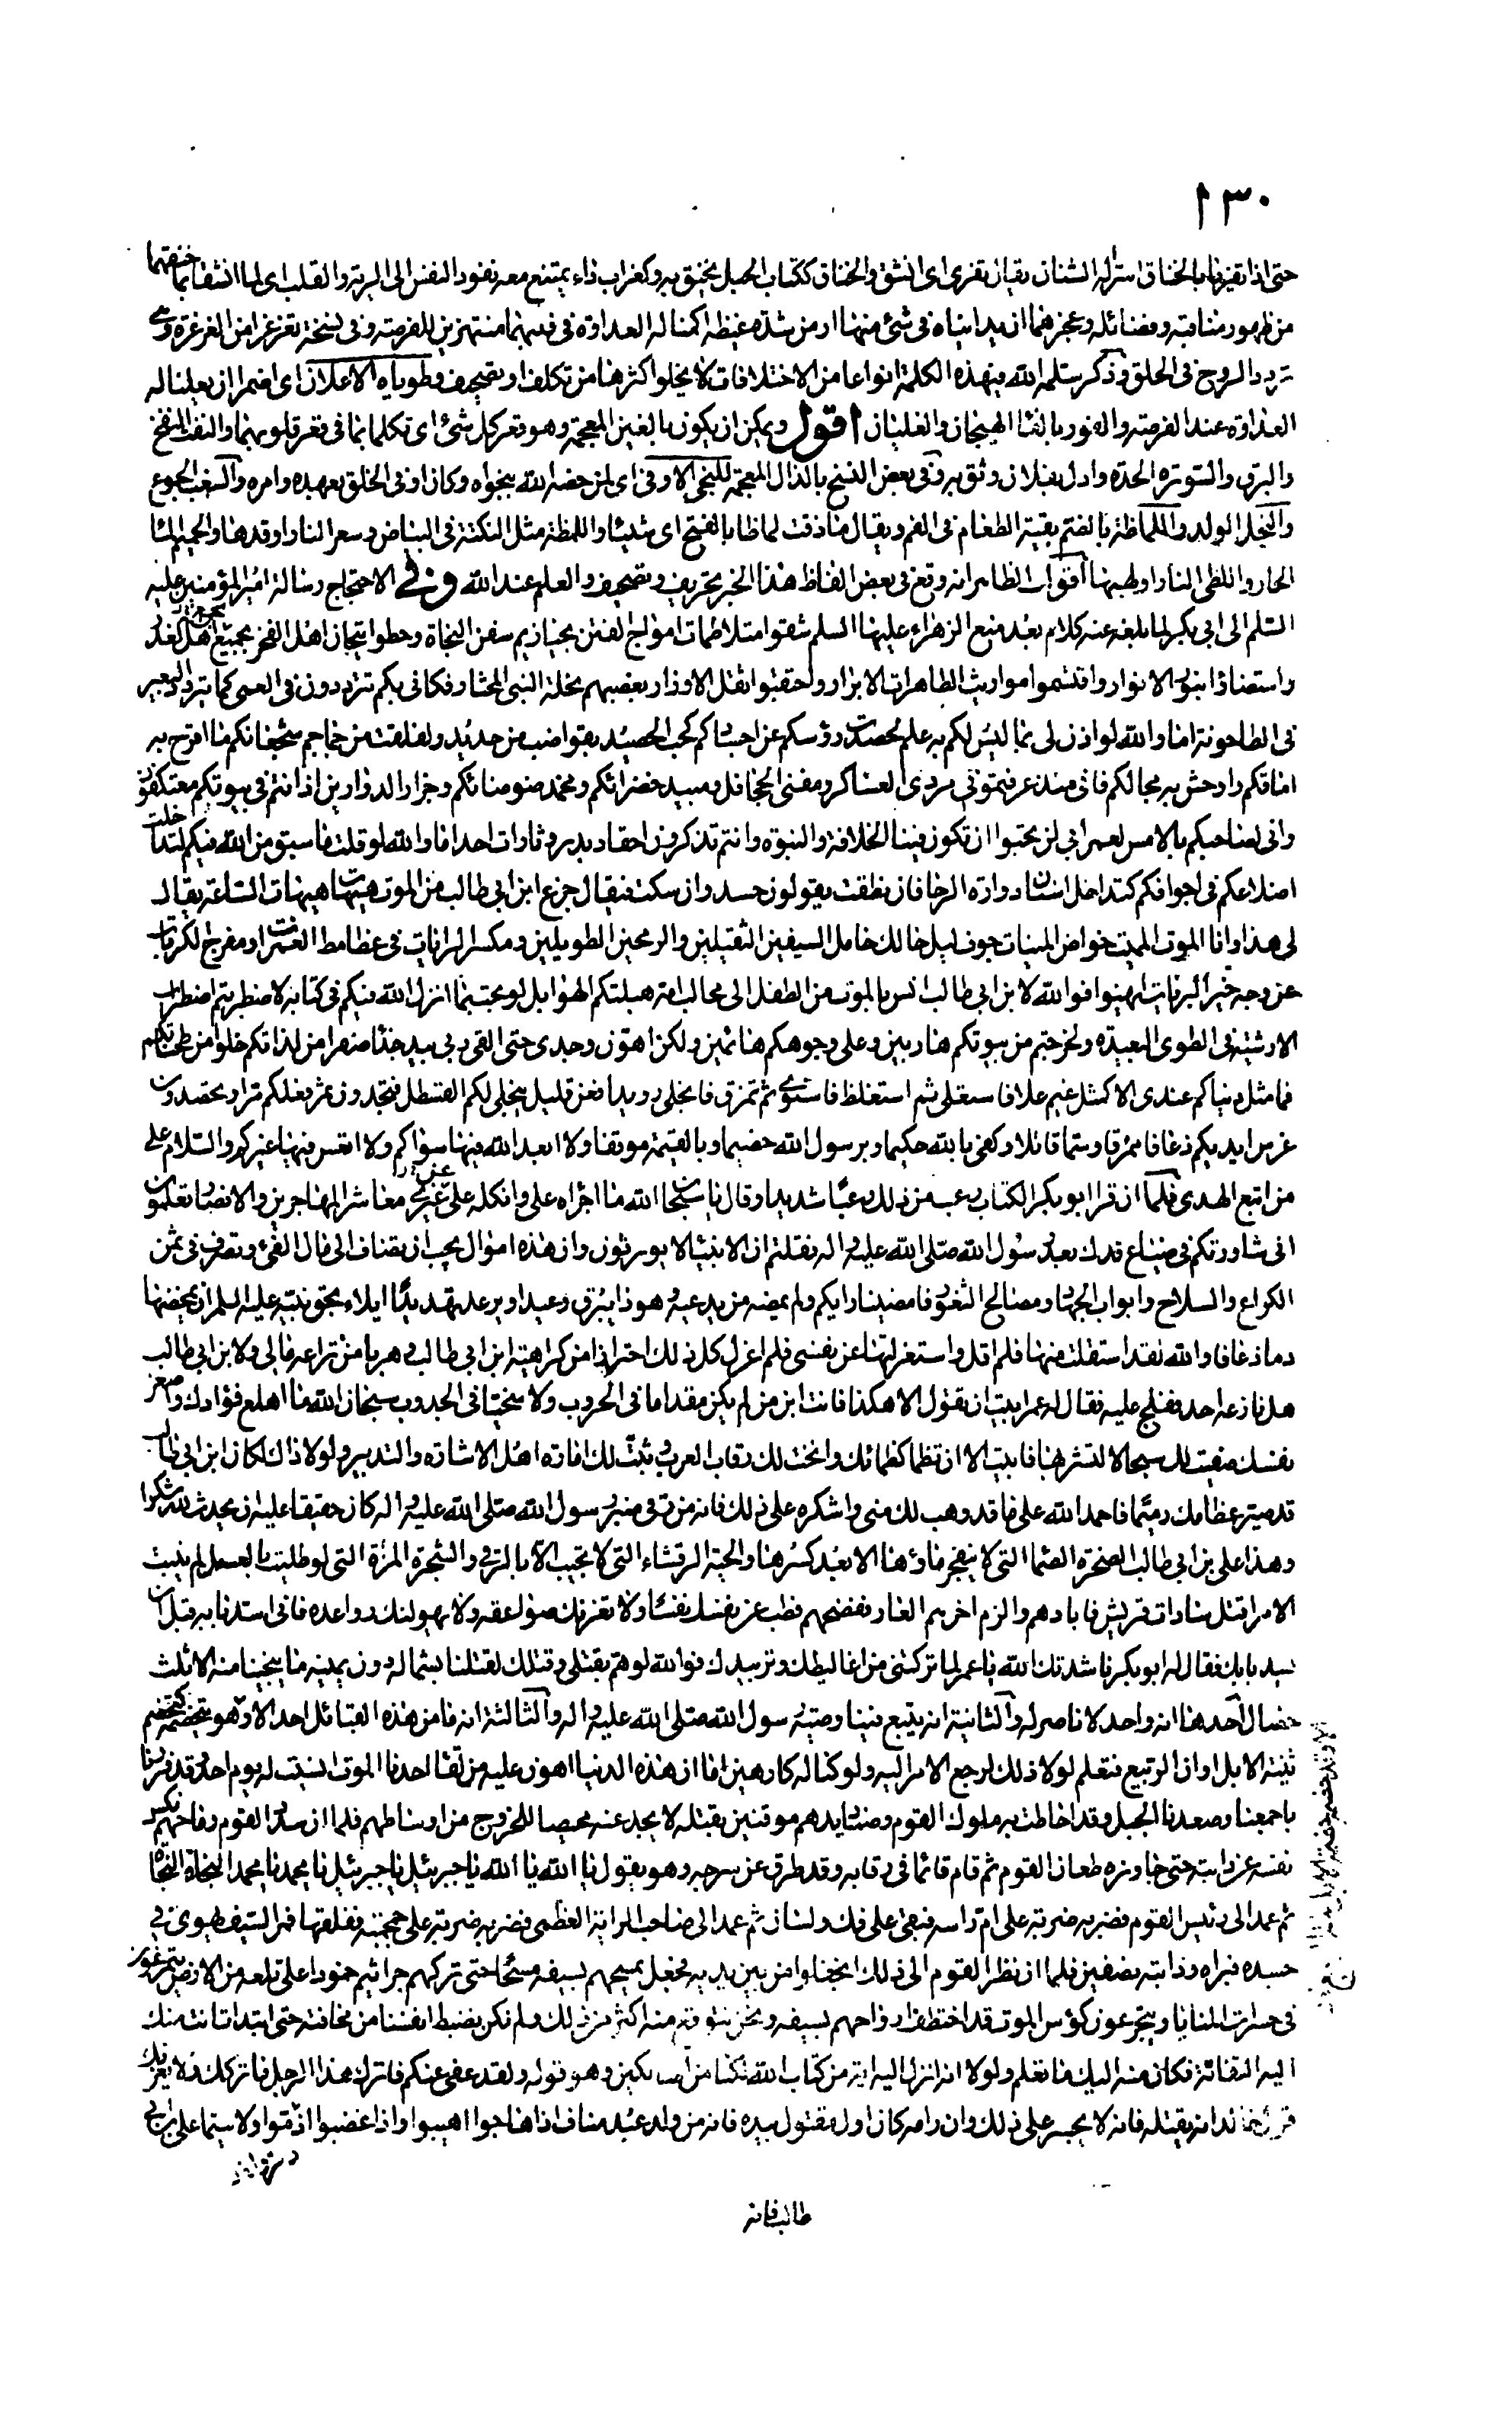 ١٣٠
حتى اذا تفريا بالخناق اسرا له الشنان يقال تفرى اى انشق والخناق ككتاب الحبل يخنق به وكغراب داء يمتنع معه نفوذ النفس الى الرية والقلب اى لما انشقا بما خنقهما
من ظهور مناقبه وفضائله وعجزهما ان يدانياه فى شئ منها او من شدة غيظه اكمنا له العداوة فى قلبهما منتهزين للفرصة وفى نسخة تغرغرا من الغرغرة وهى
تردد الروح فى الحلق وذكر سلمه الله فى هذه الكلمة انواعا من الاختلافات لا يخلوا كثرها من تكلف او تصحيف وطوياه الاعلان اى اضمرا ان يعلنا له
العداوة عند الفرصة والفور بالفاء الهيجان والغليان اقول ويمكن ان يكون بالغين المعجمة وهو قعر كل شئ اى تكلما بما فى قعر قلوبهما والنفث النفخ
والبزق والسورة الحدة وادل بفلان وثق به وفى بعض النسخ بالذال المعجمة للبخى الاوفى اى لمن خصه الله بنجواه وكان اوفى الخلق بعهده وامره والسغب الجوع
والنجل الولد واللماظة بالضم بقية الطعام فى الفم ويقال ما ذقت لماظا بالفتح اى شيئا واللمظة مثل النكتة فى البياض وسعر النار اوقدها والحميم الماء
الحار واللظى النار او لهبها اقول الظاهر انه وقع فى بعض الفاظ هذا الخبر تحريف وتصحيف والعلم عند الله وفى الاحتجاج رسالة امير المؤمنين عليه
السلم الى ابى بكر لما بلغه عنه كلام بعد منع الزهراء عليها السلم شقوا متلاطمات امواج الفتن بحيازيم سفن النجاة وحطوا تيجان اهل الفخر بجميع اهل الغدر
واستضاؤا بنور الانوار واقتسموا مواريث الطاهرات الابرار واحتقبوا ثقل الاوزار بغصبهم نحلة النبى المختار فكانى بكم تترددون فى العمى كما يتردد البعير
فى الطاحونة اما والله لو اذن لى بما ليس لكم به علم لحصدت رؤسكم عن اجسادكم كحب الحصيد بقواضب من حديد ولفلقت من جماجم شجعانكم ما اقرح به
اماقكم واوحش به محالكم فانى منذ عرفتمونى مردى العساكر ومفنى الجحافل ومبيد خضرائكم ومخمد ضوضائكم وجزار الدوارين اذ انتم فى بيوتكم معتكفون
وانى لصاحبكم بالامس لعمر ابى لن تحبوا ان تكون فينا الخلافة والنبوة وانتم تذكرون احقاد بدر وثارات احد اما والله لو قلت ما سبق من الله فيكم لتداخلت
اضلاعكم فى اجوافكم كتداخل اسنان دوارة الرحا فان نطقت يقولون حسد وان سكت فيقال جزع ابن ابى طالب من الموت هيهات هيهات الساعة يقال
لى هذا وانا الموت المميت خواض المنيات جوف ليل حالك حامل السيفين الثقيلين والرمحين الطويلين ومكسر الرايات فى غطامط الغمرات ومفرج الكربات
عن وجه خير البريات ايهنوا فوالله لابن ابى طالب انس بالموت من الطفل الى محالب امه هبلتكم الهوابل لو بحت بما انزل الله فيكم فى كتابه لاضطربتم اضطراب
الارشية فى الطوى البعيدة ولخرجتم من بيوتكم هاربين وعلى وجوهكم هائمين ولكن اهون وجدى حتى القى ربى بيد جذاء صفرا من لذاتكم خلوا من طحناتكم
فما مثل دنياكم عندى الا كمثل غيم علا فاستعلى ثم استغلظ فاستوى ثم تمزق فانجلى رويدا فعن قليل ينجلى لكم القسطل فتجدون ثمر فعلكم مرا وتحصدون
غرس ايديكم ذعافا ممزقا وسما قاتلا وكفى بالله حكيما وبرسول الله خصيما وبالقيمة موقفا ولا ابعد الله فيها سواكم ولا اتعس فيها غيركم والسلام على
من اتبع الهدى فلما ان قرا ابو بكر الكتاب رعب من ذلك رعبا شديدا وقال يا سبحان الله ما اجراه على وانكله على غيرى معاشر المهاجرين والانصار تعلمون
انى شاورتكم فى ضياع فدك بعد رسول الله صلى الله عليه واله فقلتم ان الانبياء لا يورثون وان هذه اموال يجب ان تضاف الى مال الفئ وتصرف فى ثمن
الكراع والسلاح وابواب الجهاد ومصالح الثغور فامضينا رايكم ولم يمضه من يدعيه وهو ذا يبرق وعيدا ويرعد تهديدا ايلاء بحق نبيه عليه السلم ان يمضخها
دما ذعافا والله لقد استقلت منها فلم اقل واستعزلتها عن نفسى فلم اعزل كل ذلك احترازا من كراهية ابن ابى طالب وهربا من نزاعه مالى ولابن ابى طالب
هل نازعه احد ففلج عليه فقال له عمر ابيت ان تقول الا هكذا فانت ابن من لم يكن مقداما فى الحروب ولا سخيا فى الجدوب سبحان الله ما اهلع فؤادك واصغر
نفسك صفيت لك سجالا لتشربها فابيت الا ان تظما كظمائك وانخت لك رقاب العرب وثبت لك امارة اهل الاشارة والتدبير ولولا ذاك لكان ابن ابى طالب
قد صير عظامك رميما فاحمد الله على ما قد وهب لك منى واشكره على ذلك فانه من رقى منبر رسول الله صلى الله عليه واله كان حقيقا عليه ان يحدث لله شكرا
وهذا على بن ابى طالب الصخرة الصماء التى لا ينفجر ماؤها الا بعد كسرها والحية الرقشاء التى لا تجيب الا بالرقى والشجرة المرة التى لو طليت بالعسل لم ينبت
الا مرا قتل سادات قريش فابادهم والزم اخرهم العار ففضحهم فطب عن نفسك نفسا ولا تغرنك صواعقه ولا يهولنك رواعده فانى اسد بابه قبل ان
يسد بابك فقال له ابو بكر ناشدتك الله يا عمر لما تركتنى من اغاليطك وتربيدك فوالله لو هم بقتلى وقتلك لقتلنا بشماله دون يمينه ما ينجينا منه الا ثلث
خصال احدها انه واحد لا ناصر له والثانية انه يتبع فينا وصية رسول الله صلى الله عليه واله والثالثة انه ما من هذه القبائل احد الا وهو يتخضمه كتخضم
ثنية الابل اوان الربيع فتعلم لولا ذلك لرجع الامر اليه ولو كنا له كارهين اما ان هذه الدنيا اهون عليه من لقاء احدنا الموت انسيت له يوم احد وقد فررنا
باجمعنا وصعدنا الجبل وقد احاطت به ملوك القوم وصناديدهم موقنين بقتله لا يجد عنه محيصا للخروج من اوساطهم فلما ان سدد القوم رماحهم نكس
نفسه عن دابته حتى جاوزه طعان القوم ثم قام قائما فى ركابه وقد طرق عن سرجه وهو يقول يا الله يا الله يا جبرئيل يا جبرئيل يا محمد يا محمد النجاة النجاة
ثم عمد الى رئيس القوم فضربه ضربة على ام راسه فبقى على فك ولسان ثم عمد الى صاحب الراية العظمى فضربه ضربة على جمجمته ففلقها فمر السيف يهوى فى
جسده فبراه ودابته بنصفين فلما ان نظر القوم الى ذلك انجفلوا من بين يديه فجعل يمسحهم بسيفه مسحا حتى تركهم جراثيم خمودا على تلعة من الارض يتمرغون
فى حسرات المنايا ويتجرعون كؤس الموت قد اختطف ارواحهم بسيفه ونحن نتوقع منه اكثر من ذلك ولم نكن نضبط انفسنا من مخافته حتى ابتدات انت منك
اليه التفاتة فكان منه اليك ما تعلم ولولا انه انزل اليه اية من كتاب الله لكنا من الهالكين وهو قوله ولقد عفى عنكم فاترك هذا الرجل ما تركك ولا يغرنك
قول خالد انه يقتله فانه لا يجسر على ذلك وان رامه كان اول مقتول بيده فانه من ولد عبد مناف اذا هاجوا اهيبوا واذا غضبوا اذموا ولا سيما على بن ابى
طالب فانه